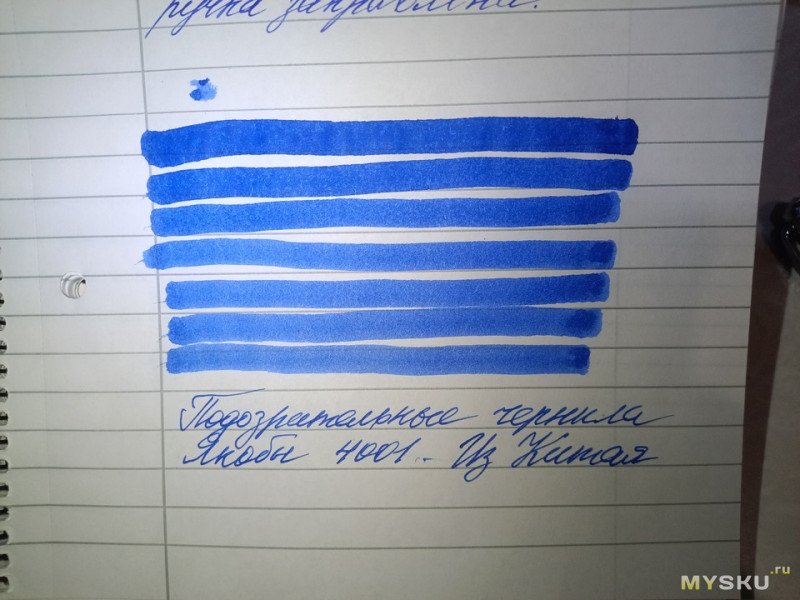 ручка заправлена.
Подозрательные чернила
Якобы 4001.. Из Китая
MYSKU.ru